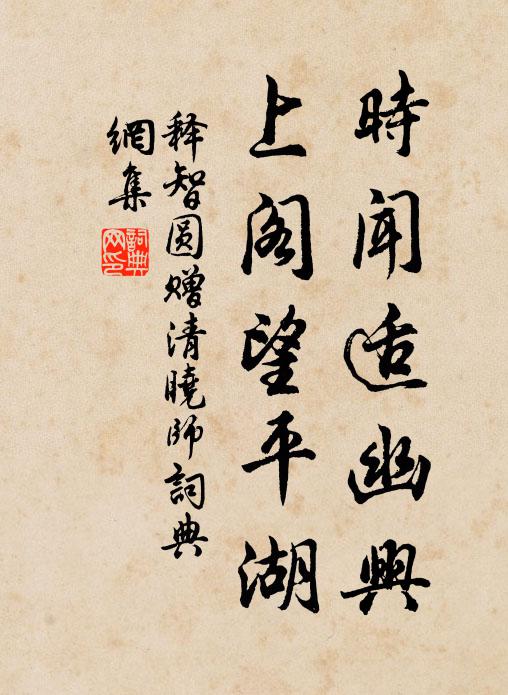 時闻适幽興
上阁望平湖
释智圆赠清曉师詞典
網集
詞典
网印